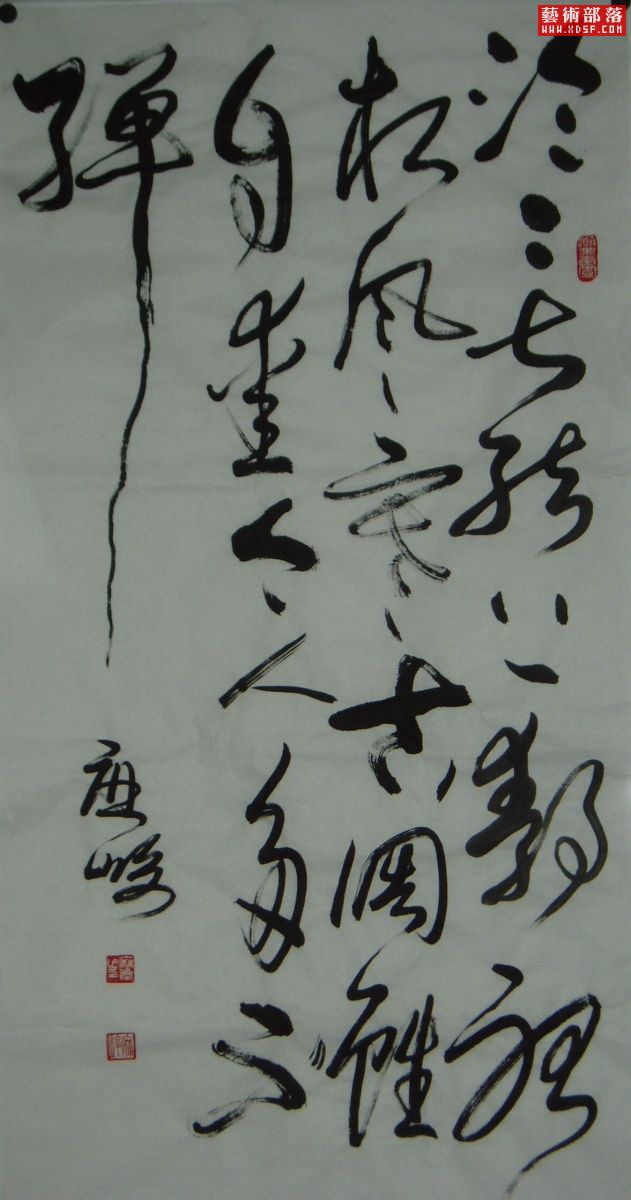 藝術部落
WWW.XDSF.COM
泠泠七絃上静聽
松风寒古調雖
自愛今人多不
彈